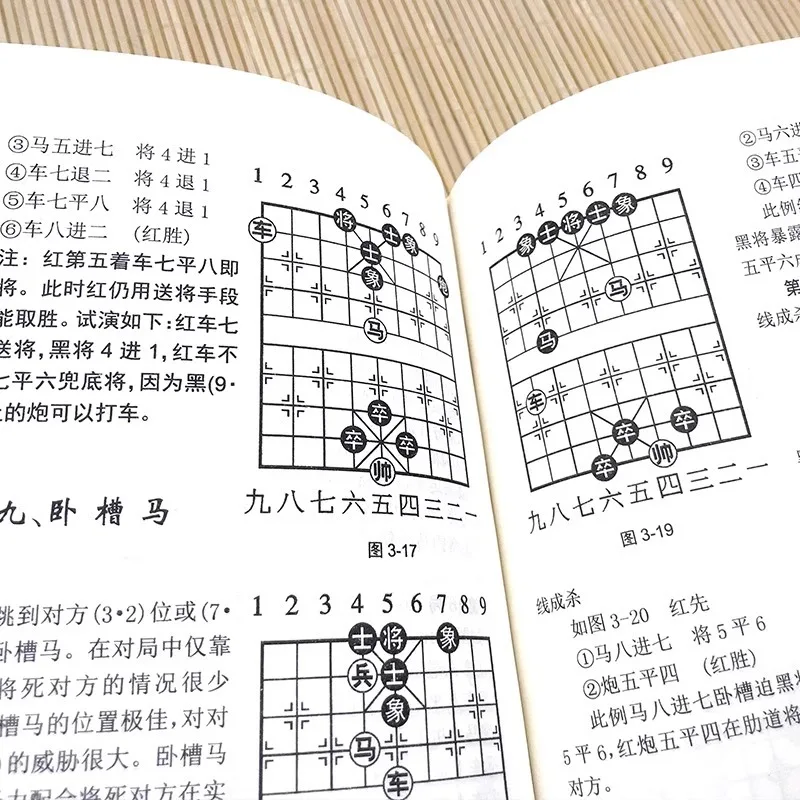 ③马五进七 将4进1
④车七退二 将4退1
⑤车七平八 将4退1
⑥车八进二 (红胜)
注：红第五着车七平八即
将。此时红仍用送将手段
能取胜。试演如下：红车七
送将，黑将4进1，红车不
七平六兜底将，因为黑(9·
上的炮可以打车。
1 2 3 4 5 6 7 8 9
将 士 象
车
士
象
炮
马
卒
卒 卒
帅
九八七六五四三二一
图3-17
九、卧槽马
跳到对方(3·2)位或(7·
卧槽马。在对局中仅靠
将死对方的情况很少
槽马的位置极佳，对对
的威胁很大。卧槽马
1 2 3 4 5 6 7 8 9
士 将 象
兵 士
象
马
车
1 2 3 4 5 6 7 8 9
象 士 将 士 象
马
马
车
卒 卒
卒 帅
九八七六五四三二一
图3-19
线成杀
如图3-20 红先
①马八进七 将5平6
②炮五平四 (红胜)
此例马八进七卧槽迫黑将
5平6，红炮五平四在肋道将
对方。
②马六进
③车五
④车四
此例
黑将暴露
五平六
第
线成杀